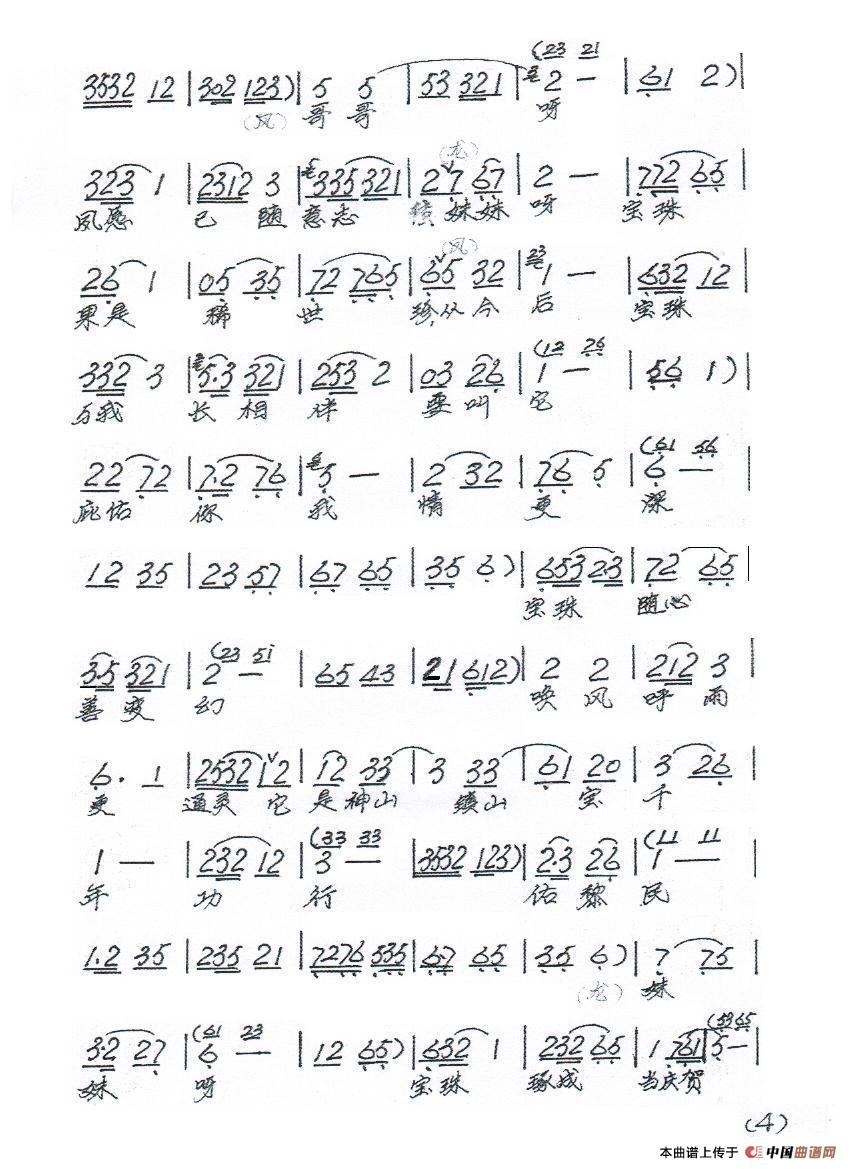 3532 12 | 302 123) | 5 5 | 53 321 | 2 — (23 21 | 61 2) |
(凤) 哥 哥 呀
(龙)
323 1 | 2312 3 | 335 321 | 27 67 | 2 — | 772 65 |
夙愿 已 随 意志 续 妹妹 呀 宝珠
(凤)
26 1 | 05 35 | 72 765 | 65 32 | 1 — | 632 12 |
果是 稀 世 珍,从今 后 宝珠
332 3 | 5·3 321 | 253 2 | 03 26 | 1 — (12 26 | 56 1) |
与我 长 相 伴 要叫 它
22 72 | 7·2 76 | 5 — | 2 32 | 76 5 | 6 — (61 56 |
庇佑 你 我 情 更 深
12 35 | 23 57 | 67 65 | 35 6) | 653 2·3 | 72 65 |
宝珠 随心
3·5 321 | 2 — (23 5i | 65 43 | 21 612) | 2 2 | 212 3 |
善变 幻 唤 风 呼 雨
6· 1 | 2532 12 | 12 33 | 3 33 | 61 20 | 3 26 |
更 通灵 它 是神山 镇山 宝 千
1 — | 232 12 | 3 — (33 33 | 3532 123) | 2·3 26 | 1 — (11 11 |
年 功 行 佑 黎 民
1·2 35 | 235 21 | 7276 535 | 6·7 65 | 35 6) | 7 75 |
(龙) 妹
3·2 27 | 6 — (61 23 | 12 65) | 632 1 | 232 65 | 1 761 | 5 — (53 65
妹 呀 宝珠 琢成 当庆贺
(4)
本曲谱上传于 中国曲谱网